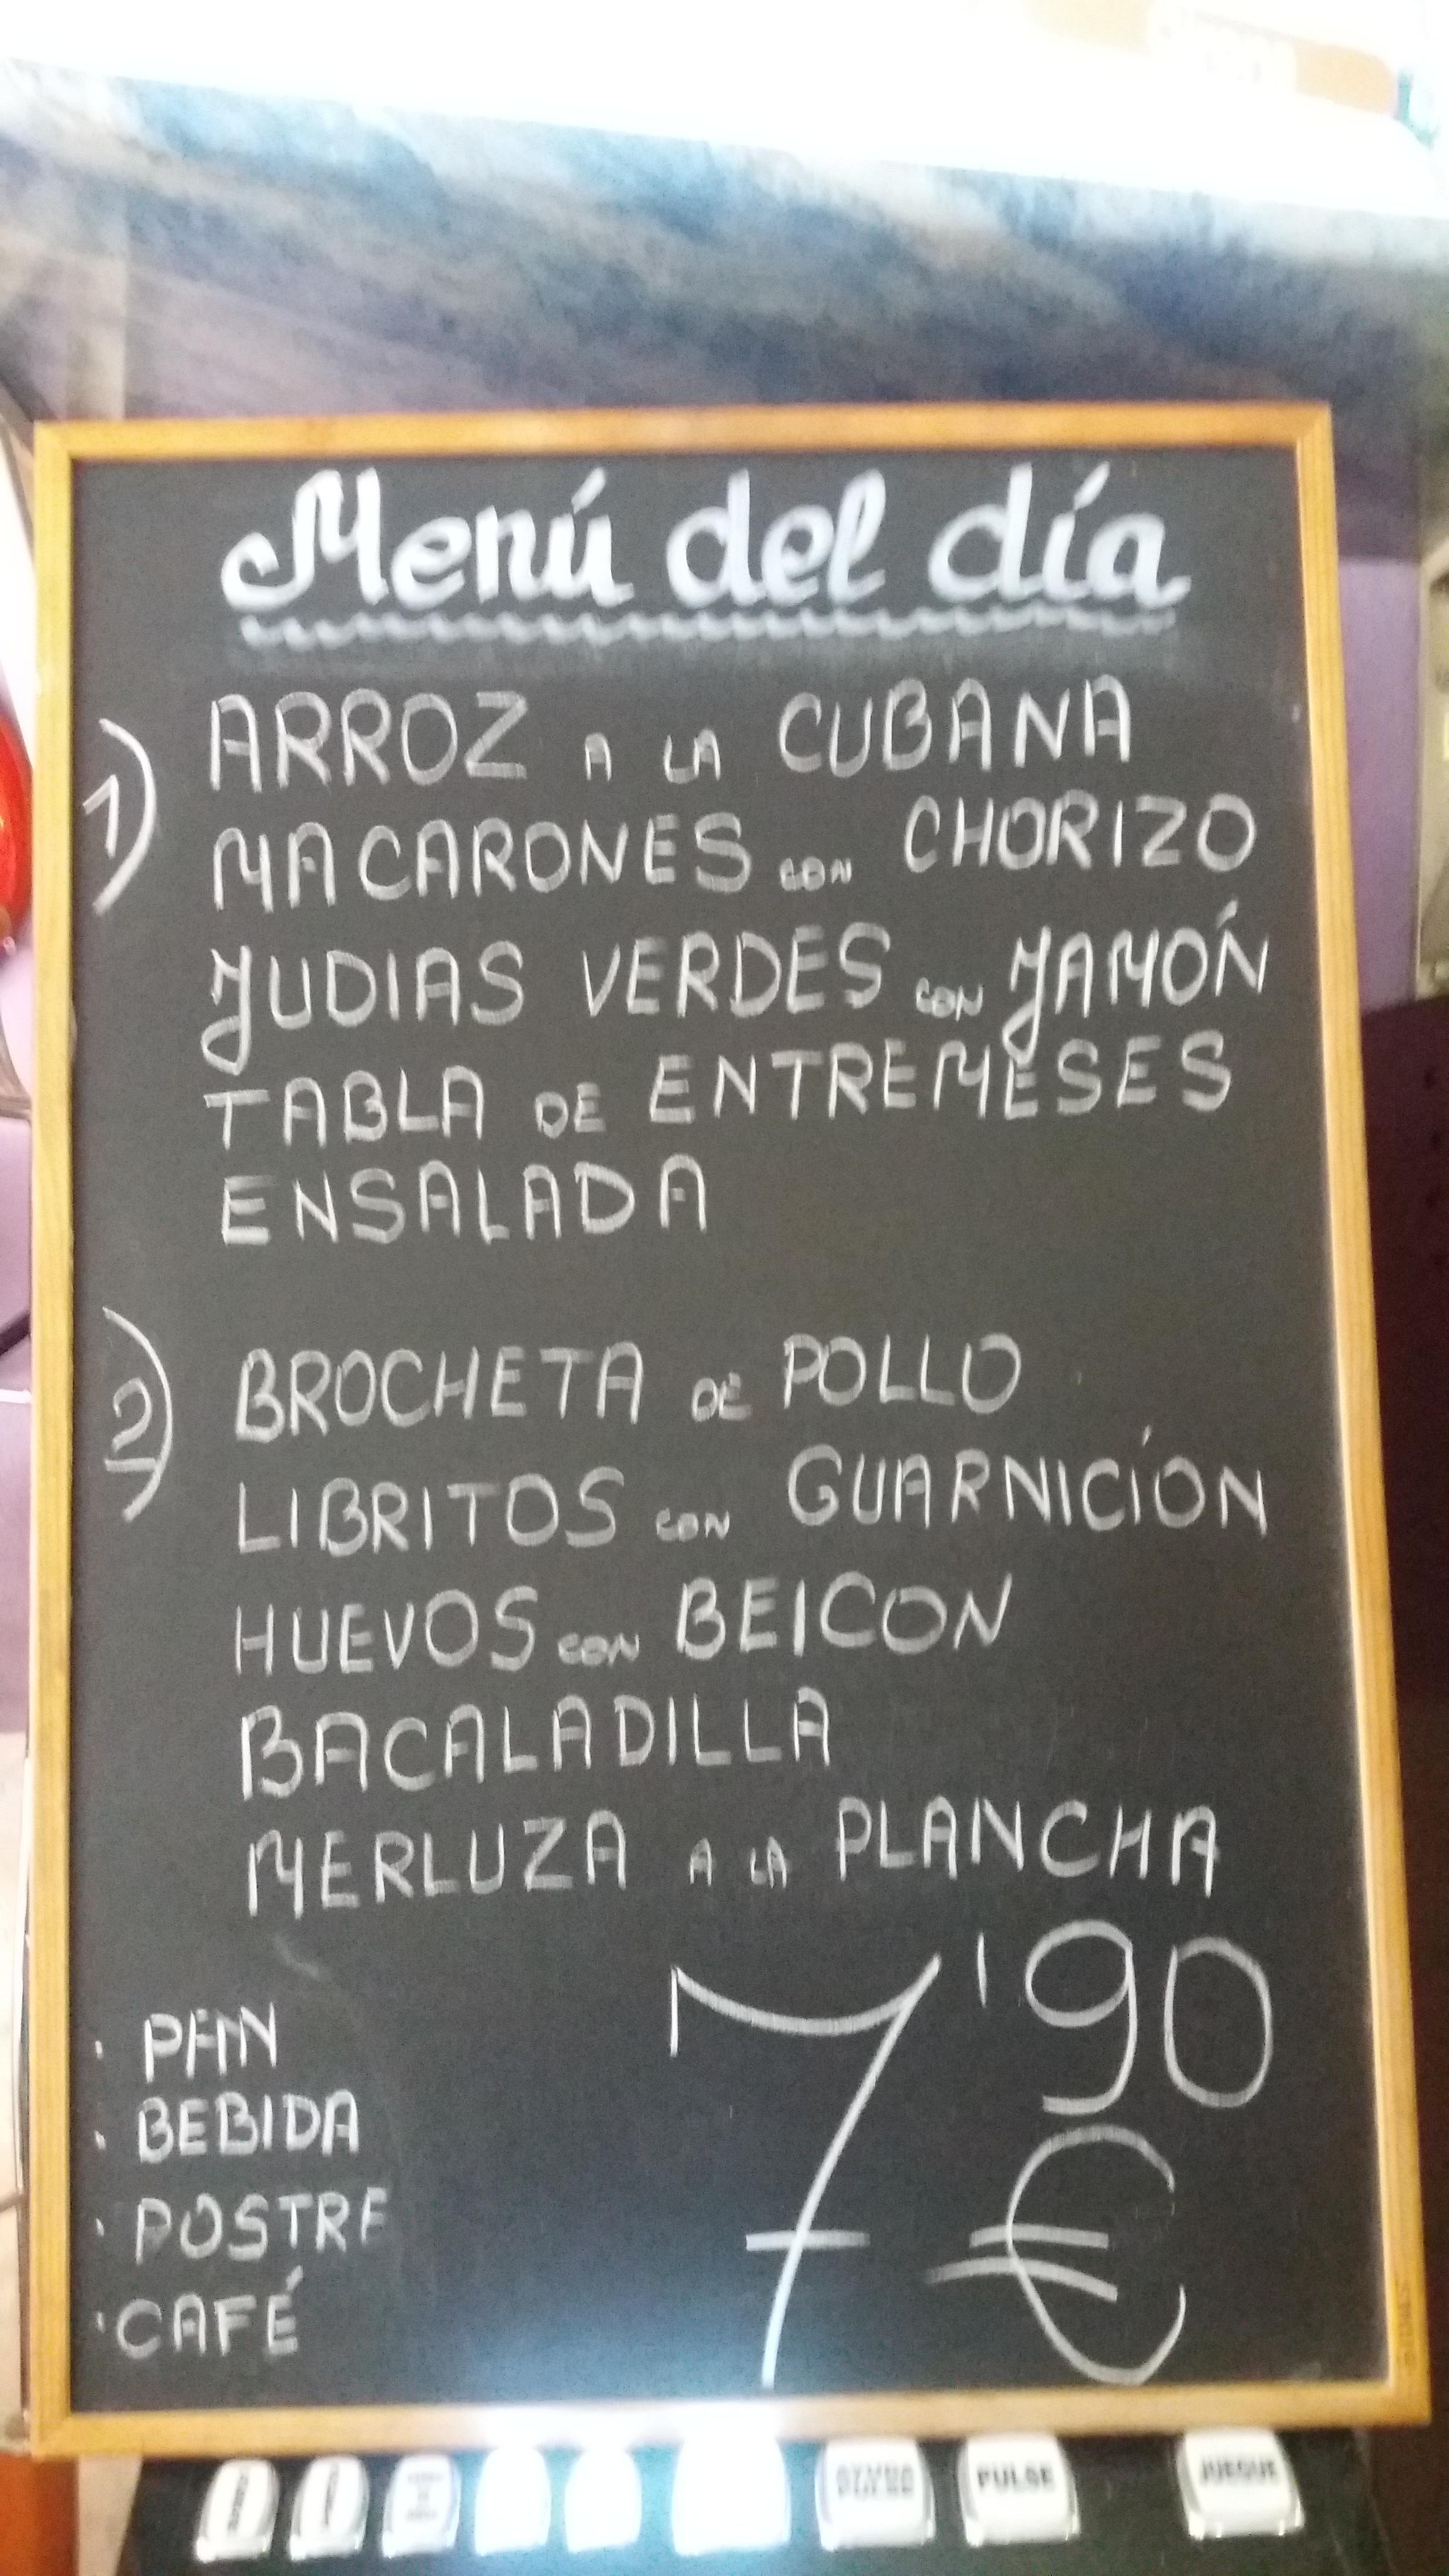 Menú del día
1) ARROZ A LA CUBANA
MACARONES CON CHORIZO
JUDIAS VERDES CON JAMÓN
TABLA DE ENTREMESES
ENSALADA
2) BROCHETA DE POLLO
LIBRITOS CON GUARNICIÓN
HUEVOS CON BEICON
BACALADILLA
MERLUZA A LA PLANCHA
· PAN
· BEBIDA
· POSTRE
· CAFÉ
7'90
€
PULSE
JUEGUE